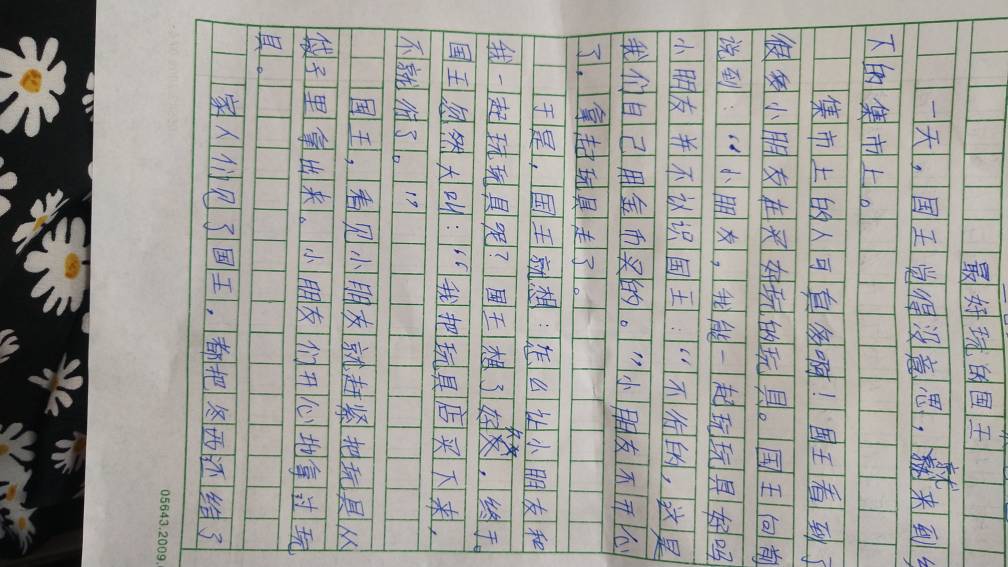 最好玩的国王
一天，国王觉得没意思，就来到
下的集市上。
集市上的人可真多啊！国王看到了
很多小朋友在买好玩的玩具。国王向前
说到：“小朋友，我能一起玩玩具好吗
小朋友并不认识国王：“不佑的，这是
我们自己用金币买的。”小朋友不开心
了，拿起玩具走了。
于是，国王就想：怎么让小朋友和
我一起玩玩具呢？国王想了好久，终于。
国王忽然大叫：“我把玩具店买下来，
不就佑了。”
国王，看见小朋友就赶紧把玩具从
袋子里拿出来。小朋友们开心地拿过玩
具。
家人们见了国王，都把冬西还给了
05643.2009.